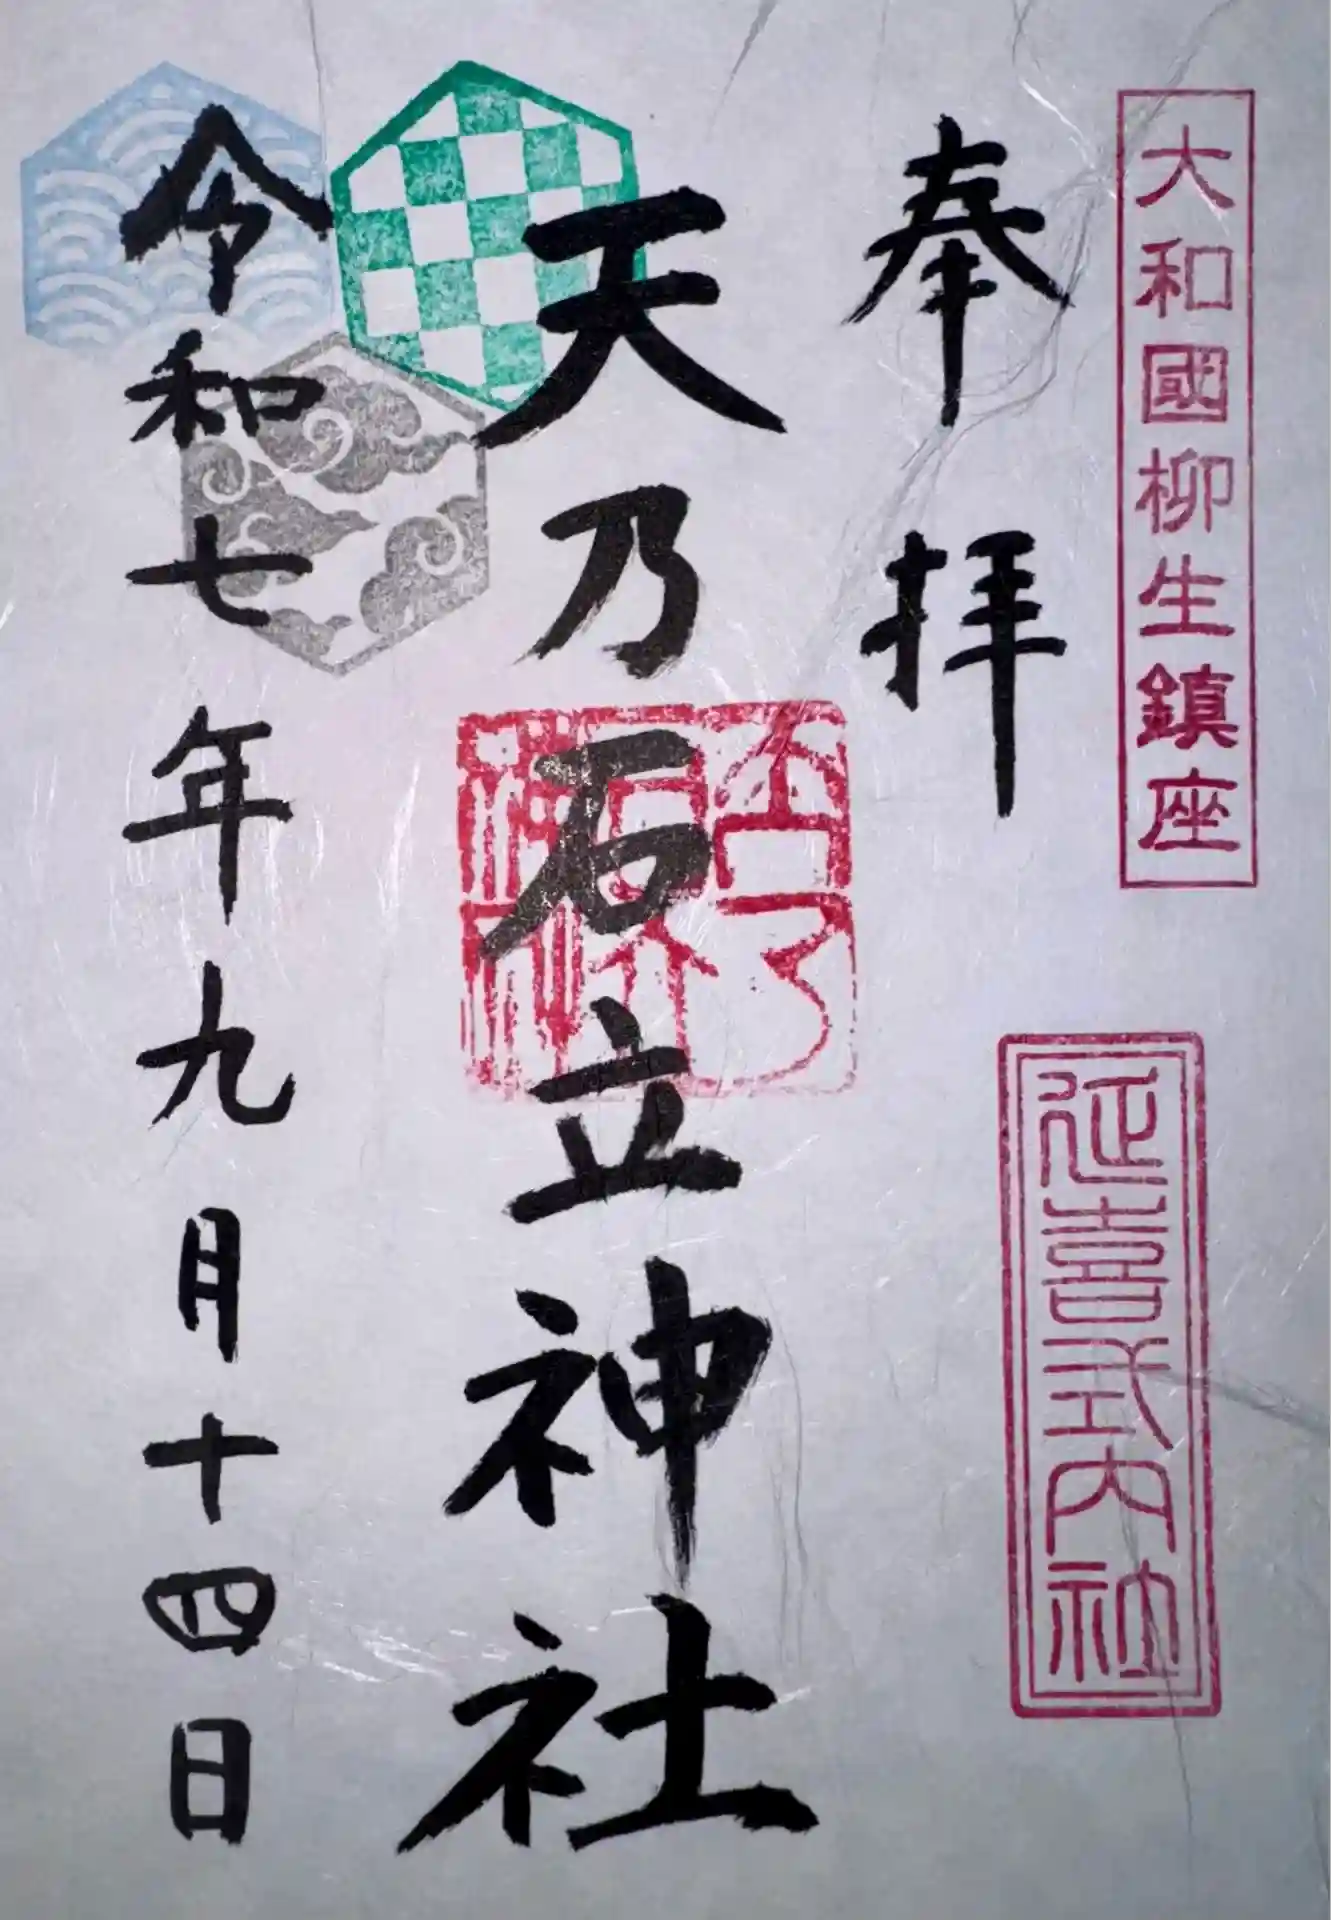 大和國柳生鎮座
延喜式内社
奉拝
天乃石立神社
令和七年九月十四日